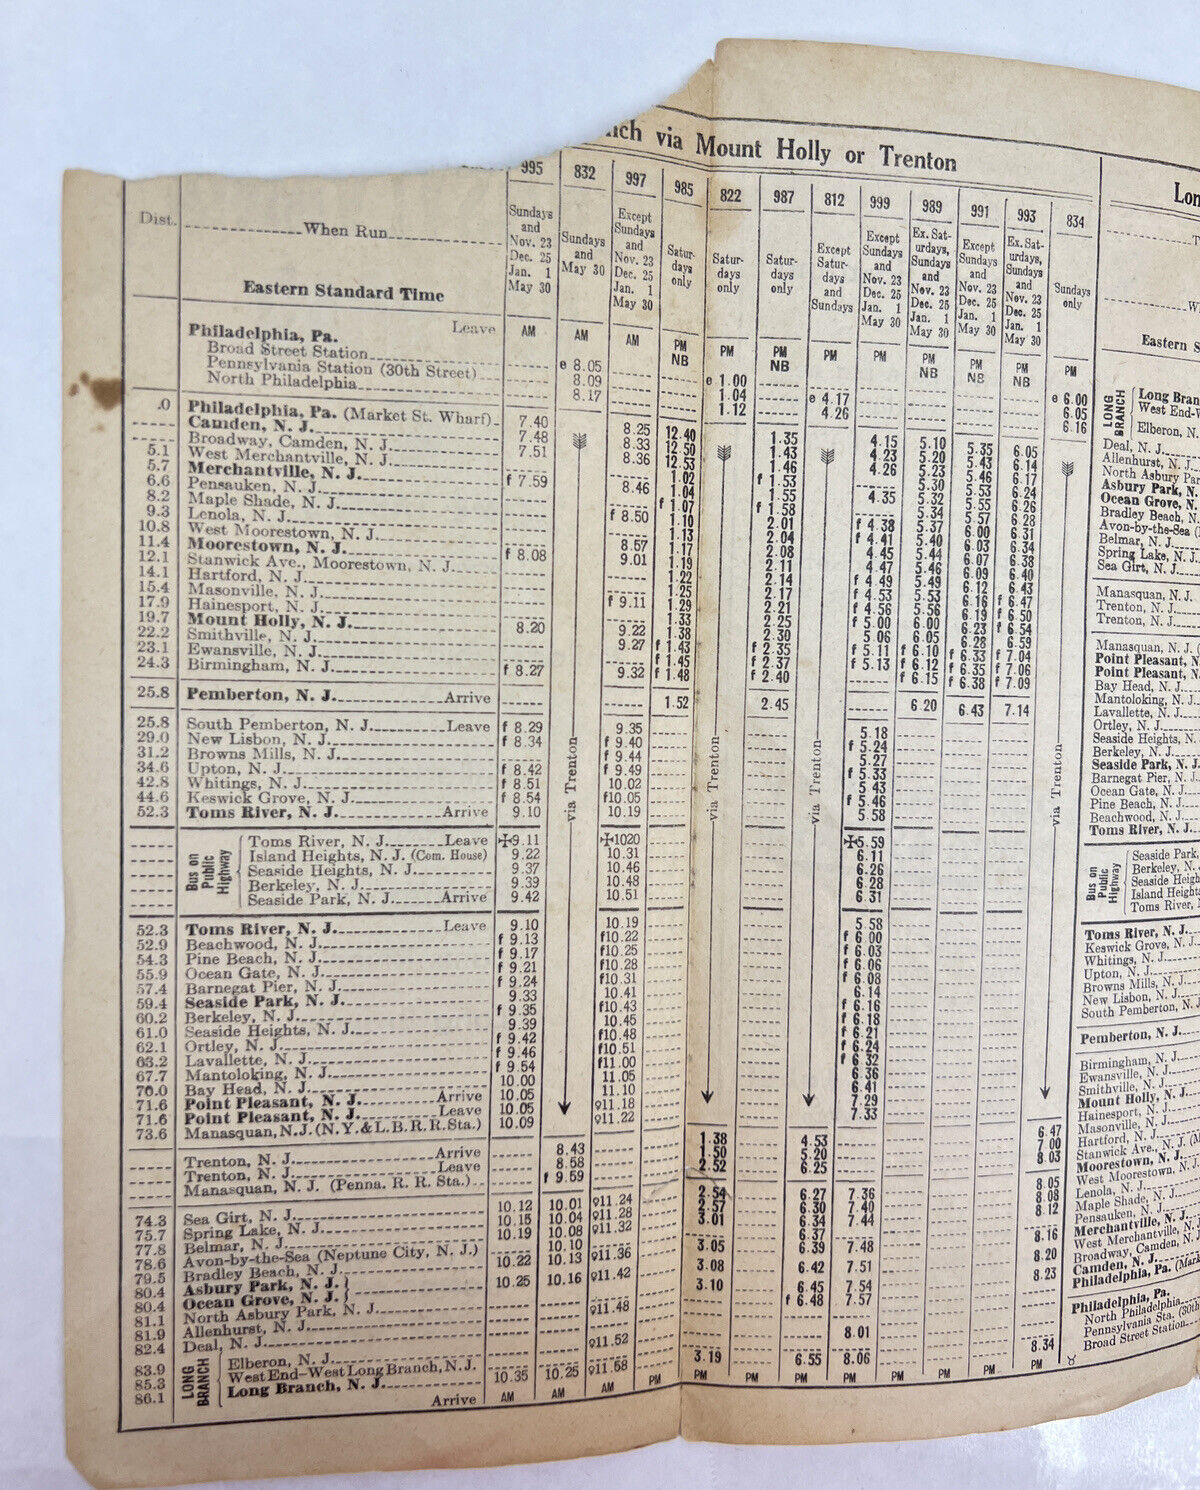 nch via Mount Holly or Trenton
995 832 997 985 822 987 812 999 989 991 993 834
Dist. When Run
Sundays and Nov. 23 Dec. 25 Jan. 1 May 30
Sundays and May 30
Except Sundays and Nov. 23 Dec. 25 Jan. 1 May 30
Satur-days only
Satur-days only
Satur-days only
Except Satur-days and Sundays
Except Sundays and Nov. 23 Dec. 25 Jan. 1 May 30
Ex. Sat-urdays, Sundays and Nov. 23 Dec. 25 Jan. 1 May 30
Except Sundays and Nov. 23 Dec. 25 Jan. 1 May 30
Ex. Sat-urdays, Sundays and Nov. 23 Dec. 25 Jan. 1 May 30
Sundays only
Eastern Standard Time
Philadelphia, Pa. Leave AM AM AM PM NB PM PM NB PM PM PM NB PM NB PM NB PM
Broad Street Station e 8.05 e 1.00 e 4.17 e 6.00
Pennsylvania Station (30th Street) 8.09 1.04 6.05
North Philadelphia 8.17 1.12 4.26 6.16
.0 Philadelphia, Pa. (Market St. Wharf) 7.40 8.25 12.40 1.35 4.15 5.10 5.35 6.05
Camden, N. J. 7.48 8.33 12.50 1.43 4.23 5.20 5.43 6.14
Broadway, Camden, N. J. 7.51 8.36 12.53 1.46 4.26 5.23 5.46 6.17
5.1 West Merchantville, N. J. 1.02 f 1.53 5.30 5.53 6.24
5.7 Merchantville, N. J. f 7.59 8.46 1.04 1.55 4.35 5.32 5.55 6.26
6.6 Pensauken, N. J. f 1.07 f 1.58 5.34 5.57 6.28
8.2 Maple Shade, N. J. f 8.50 1.10 2.01 f 4.38 5.37 6.00 6.31
9.3 Lenola, N. J. 1.13 2.04 f 4.41 5.40 6.03 6.34
10.8 West Moorestown, N. J. 8.57 1.17 2.08 4.45 5.44 6.07 6.38
11.4 Moorestown, N. J. f 8.08 9.01 1.19 2.11 4.47 5.46 6.09 6.40
12.1 Stanwick Ave., Moorestown, N. J. 1.22 2.14 f 4.49 5.49 6.12 6.43
14.1 Hartford, N. J. 1.25 2.17 f 4.53 5.53 6.16 f 6.47
15.4 Masonville, N. J. f 9.11 1.29 2.21 f 4.56 5.56 6.19 f 6.50
17.9 Hainesport, N. J. 1.33 2.25 f 5.00 6.00 6.23 f 6.54
19.7 Mount Holly, N. J. 8.20 9.22 1.38 2.30 5.06 6.05 6.28 6.59
22.2 Smithville, N. J. 9.27 f 1.43 f 2.35 f 5.11 f 6.10 f 6.33 f 7.04
23.1 Ewansville, N. J. f 1.45 f 2.37 f 5.13 f 6.12 f 6.35 f 7.06
24.3 Birmingham, N. J. f 8.27 9.32 f 1.48 f 2.40 f 6.15 f 6.38 f 7.09
25.8 Pemberton, N. J. Arrive 1.52 2.45 6.20 6.43 7.14
25.8 South Pemberton, N. J. Leave f 8.29 9.35 5.18
29.0 New Lisbon, N. J. f 8.34 f 9.40 f 5.24
31.2 Browns Mills, N. J. f 9.44 5.27
34.6 Upton, N. J. f 8.42 f 9.49 f 5.33
42.8 Whitings, N. J. f 8.51 10.02 5.43
44.6 Keswick Grove, N. J. f 8.54 f10.05 f 5.46
52.3 Toms River, N. J. Arrive 9.10 10.19 5.58
via Trenton via Trenton via Trenton via Trenton
Bus on Public Highway
Toms River, N. J. Leave ✠9.11 ✠1020 ✠5.59
Island Heights, N. J. (Com. House) 9.22 10.31 6.11
Seaside Heights, N. J. 9.37 10.46 6.26
Berkeley, N. J. 9.39 10.48 6.28
Seaside Park, N. J. Arrive 9.42 10.51 6.31
52.3 Toms River, N. J. Leave 9.10 10.19 5.58
52.9 Beachwood, N. J. f 9.13 f10.22 f 6.00
54.3 Pine Beach, N. J. f 9.17 f10.25 f 6.03
55.9 Ocean Gate, N. J. f 9.21 f10.28 f 6.06
57.4 Barnegat Pier, N. J. f 9.24 f10.31 f 6.08
59.4 Seaside Park, N. J. 9.33 10.41 6.14
60.2 Berkeley, N. J. f 9.35 f10.43 f 6.16
61.0 Seaside Heights, N. J. 9.39 10.45 f 6.18
62.1 Ortley, N. J. f 9.42 f10.48 f 6.21
63.2 Lavallette, N. J. f 9.46 f10.51 f 6.24
67.7 Mantoloking, N. J. f 9.54 f11.00 f 6.32
70.0 Bay Head, N. J. 10.00 11.05 6.36
71.6 Point Pleasant, N. J. Arrive 10.05 11.10 6.41
71.6 Point Pleasant, N. J. Leave 10.05 ♀11.18 7.29
73.6 Manasquan, N.J. (N.Y.&L.B.R.R.Sta.) 10.09 ♀11.22 7.33
Trenton, N. J. Arrive 8.43 1.38 4.53 6.47
Trenton, N. J. Leave 8.58 1.50 5.20 7.00
Manasquan, N. J. (Penna. R. R. Sta.) f 9.59 2.52 6.25 8.03
74.3 Sea Girt, N. J. 10.12 10.01 ♀11.24 2.54 6.27 7.36 8.05
75.7 Spring Lake, N. J. 10.15 10.04 ♀11.28 2.57 6.30 7.40 8.08
77.8 Belmar, N. J. 10.19 10.08 ♀11.32 3.01 6.34 7.44 8.12
78.6 Avon-by-the-Sea (Neptune City, N. J.) 10.10 6.37
79.5 Bradley Beach, N. J. 10.22 10.13 ♀11.36 3.05 6.39 7.48 8.16
80.4 Asbury Park, N. J. 3.08 6.42 7.51 8.20
80.4 Ocean Grove, N. J. 10.25 10.16 ♀11.42 3.10 6.45 7.54 8.23
81.1 North Asbury Park, N. J. f 6.48 7.57
81.9 Allenhurst, N. J. ♀11.48
82.4 Deal, N. J. 8.01
LONG BRANCH
83.9 Elberon, N. J. ♀11.52 8.34
85.3 West End-West Long Branch, N.J. 3.19 6.55 8.06
86.1 Long Branch, N. J. Arrive 10.35 10.25 ♀11.58
AM AM AM PM PM PM PM PM PM PM PM PM
Lon
T
W
Eastern S
LONG BRANCH
Long Bran
West End-W
Elberon, N.
Deal, N. J.
Allenhurst, N. J.
North Asbury Par
Asbury Park, N.
Ocean Grove, N.
Bradley Beach, N.
Avon-by-the-Sea (
Belmar, N. J.
Spring Lake, N. J.
Sea Girt, N. J.
Manasquan, N. J.
Trenton, N. J.
Trenton, N. J.
Manasquan, N. J. (
Point Pleasant, N.
Point Pleasant, N.
Bay Head, N. J.
Mantoloking, N. J.
Lavallette, N. J.
Ortley, N. J.
Seaside Heights, N.
Berkeley, N. J.
Seaside Park, N. J.
Barnegat Pier, N. J.
Ocean Gate, N. J.
Pine Beach, N. J.
Beachwood, N. J.
Toms River, N. J.
Bus on Public Highway
Seaside Park,
Berkeley, N. J.
Seaside Heigh
Island Heights
Toms River, N
Toms River, N. J.
Keswick Grove, N. J.
Whitings, N. J.
Upton, N. J.
Browns Mills, N. J.
New Lisbon, N. J.
South Pemberton, N. J.
Pemberton, N. J.
Birmingham, N. J.
Ewansville, N. J.
Smithville, N. J.
Mount Holly, N. J.
Hainesport, N. J.
Masonville, N. J.
Hartford, N. J.
Stanwick Ave., N. J. (M
Moorestown, N. J.
West Moorestown, N. J.
Lenola, N. J.
Maple Shade, N. J.
Pensauken, N. J.
Merchantville, N. J.
West Merchantville, N. J.
Broadway, Camden, N. J.
Camden, N. J.
Philadelphia, Pa. (Mark
Philadelphia, Pa.
North Philadelphia
Pennsylvania Sta. (30th
Broad Street Station